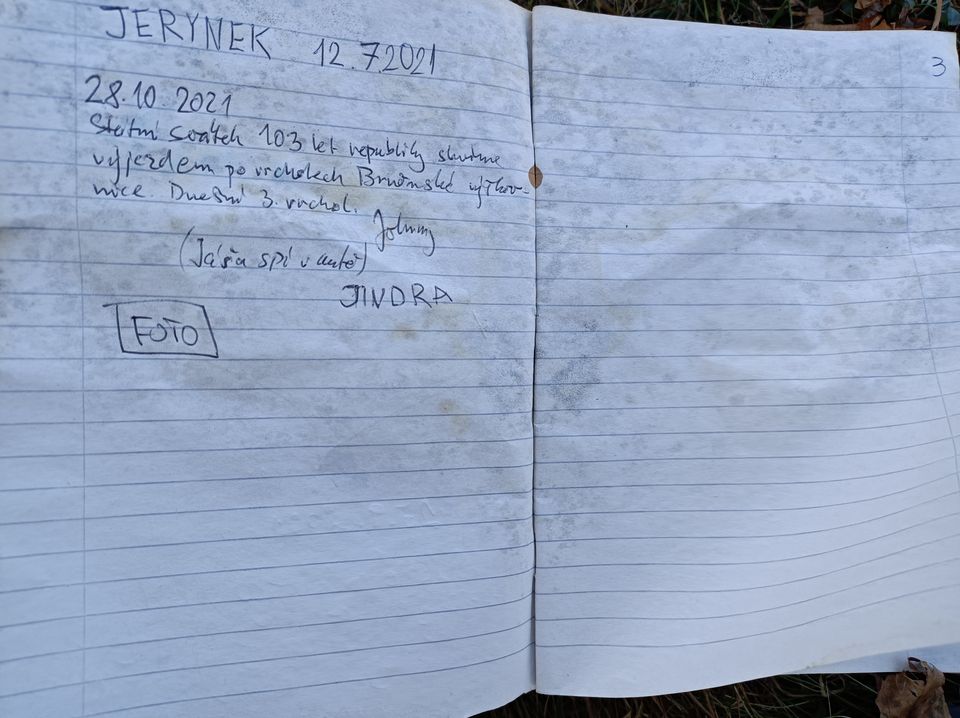 JERYNEK 12.7.2021
3
28.10.2021
Státní svátek 103 let republiky slavíme
výjezdem po vrcholech Brněnské vrchov-
nice. Dnešní 3. vrchol.
Johnny
(Jáša spí v autě)
JINDRA
FOTO